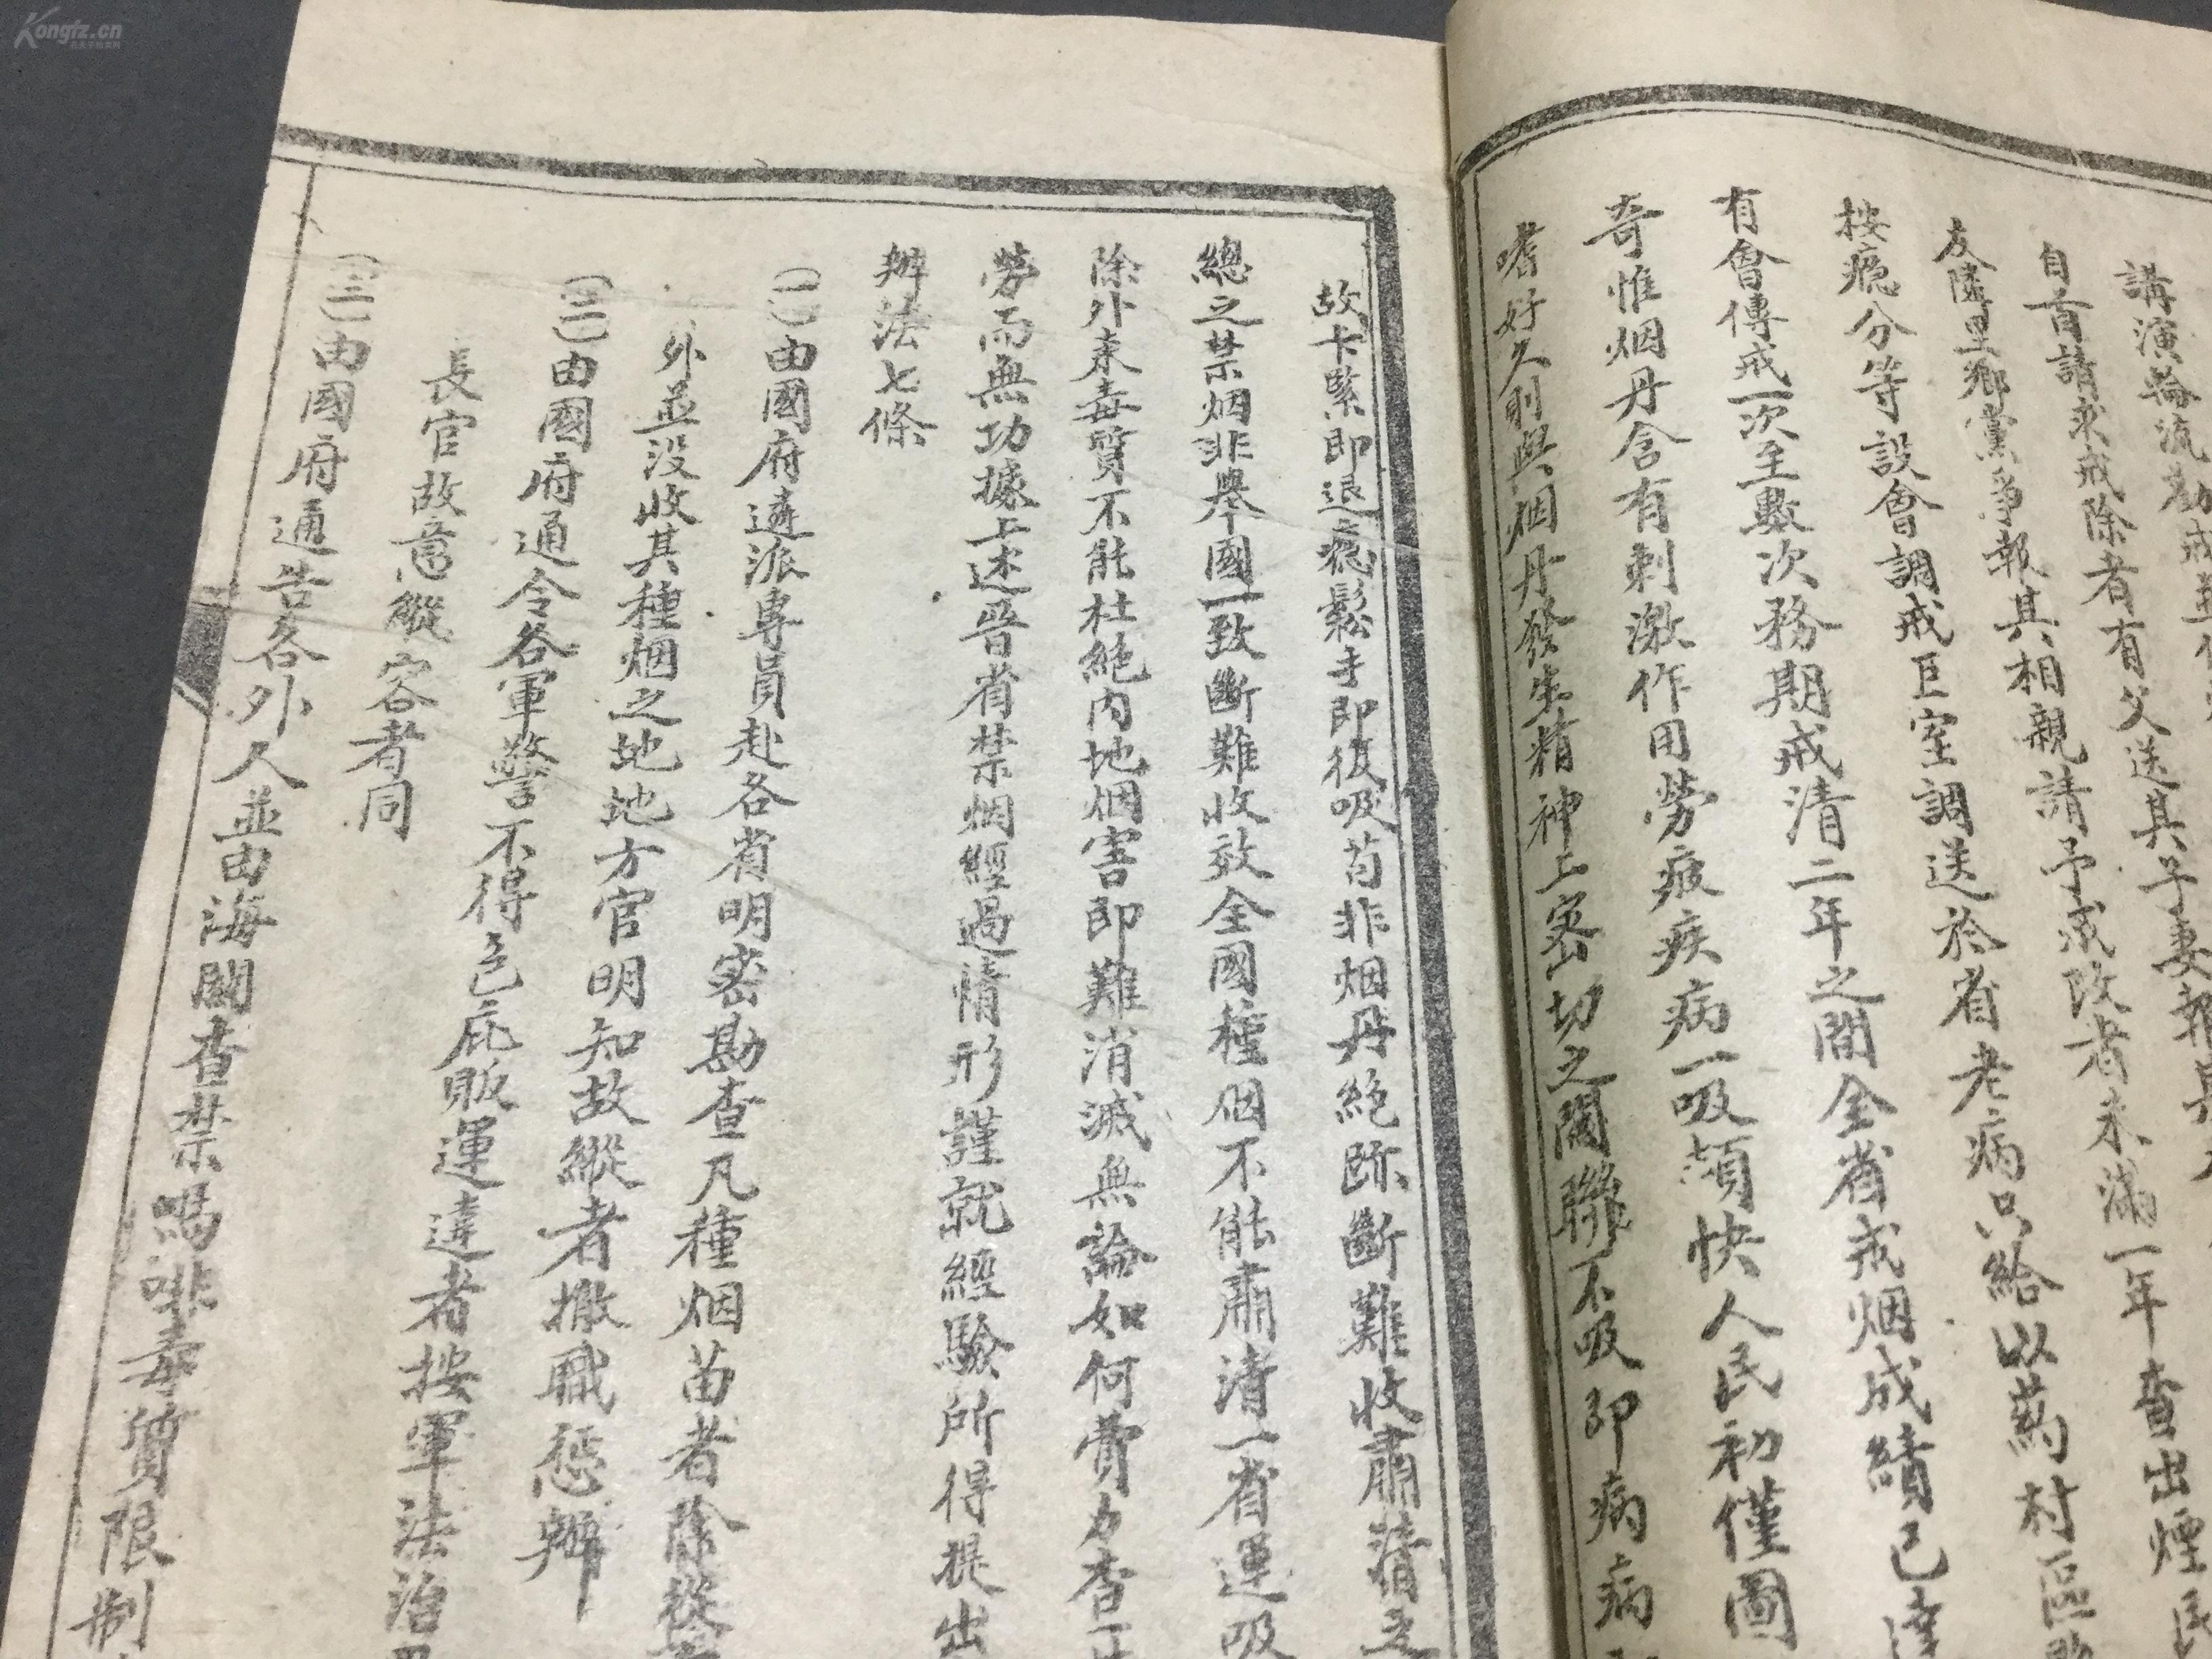 Kongfz.cn
講演輪流勸戒至
自首請求戒除者有父送其子妻報其
友隣里鄉黨爭報其相親請予戒改者未滿一年查出煙民
按癮分等設會調戒巨室調送於省老病只給以葯村區
有會傳戒一次至數次務期戒清二年之間全省戒烟成績已達
奇惟烟丹含有刺激作用勞疲疾病一吸頓快人民初僅圖
嗜好久則與烟丹發生精神上密切之關聯不吸即病病
故卡緊即退癮鬆手即復吸苟非烟丹絶跡斷難收肅清之
總之禁烟非舉國一致斷難收效全國種烟不能肅清一省運吸
除外來毒質不能杜絶內地烟害即難消滅無論如何費力查
勞而無功據上述晉省禁烟經過情形謹就經驗所得提出
辦法七條
(一)由國府遴派專員赴各省明密勘查凡種烟苗者除從
外並没收其種烟之地地方官明知故縱者撤職懲辦
(二)由國府通令各軍警不得包庇販運違者按軍法治
長官故意縱容者同
(三)由國府通告各外人並由海關查禁嗎啡毒質限制